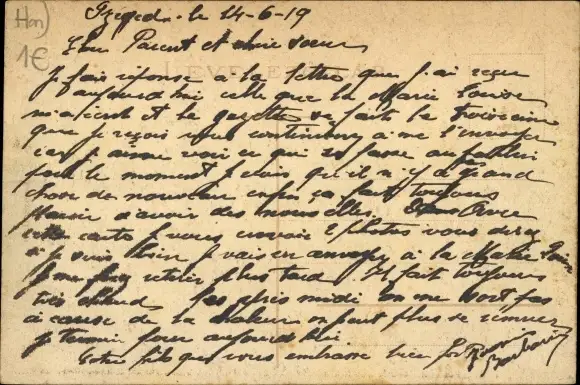 Hon)
1€
Szeged. le 14-6-19
Cher Parent et chère sœur
Je fais réponse à la lettre que j'ai reçu
aujourd'hui celle que la Marie Louise
m'a écrit et la gazette sa fait la troisième
que je reçois vous continuerez a me l'envoyer
car j'aime voir ce qui se passe au
pour le moment je crois qu'il n'y a grand
chose de nouveau enfin ça fait toujours
plaisir d'avoir des nouvelles. Dans
cette carte je vous envoie 2 photos vous direz
si je suis bien je vais en envoyer à la Marie Louise
Je me fais retirer plus tard Il fait toujours
très chaud, les après midi on ne sort pas
à cause de la chaleur on peut plus se remuer
je termine pour aujourd'hui.
Votre fils que vous embrasse bien fort